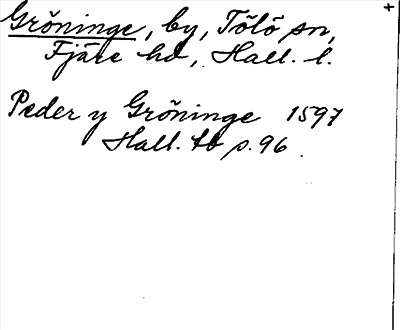 Gröninge, by, Tölö sn,
Fjäre hd, Hall. l.
Peder y Gröninge 1597
Hall. tb p. 96.
+